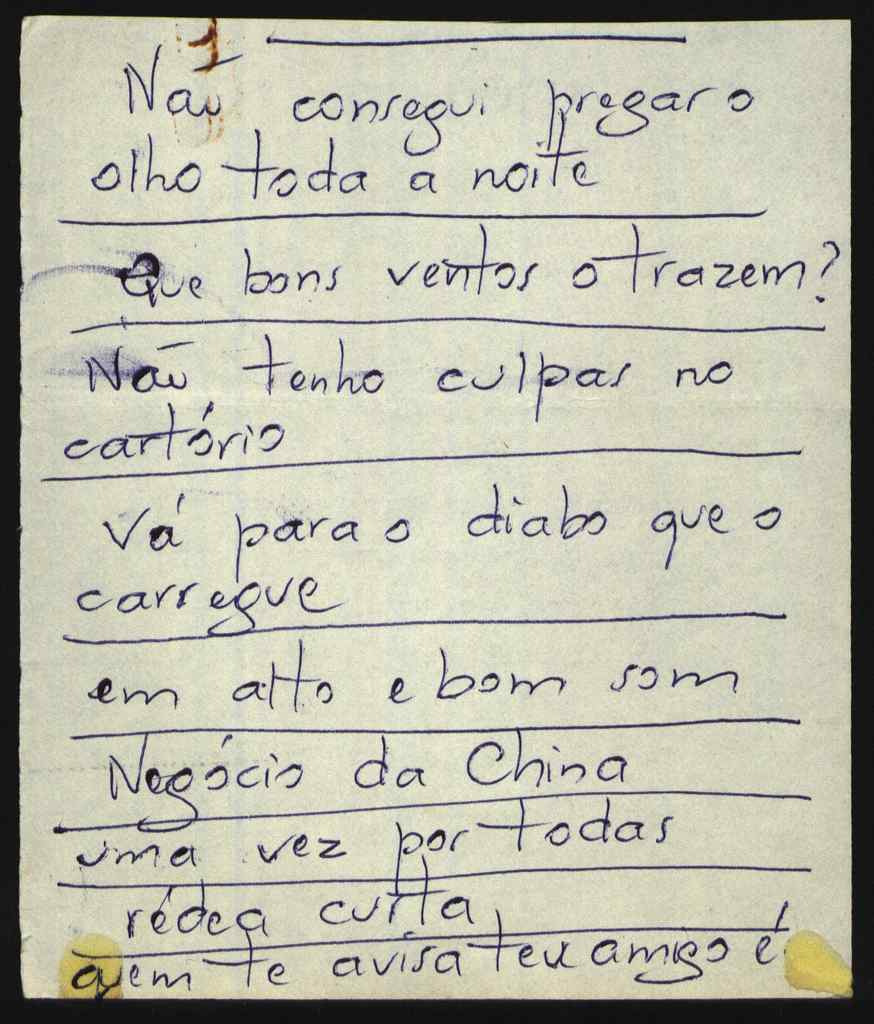 Não consegui pregar o
olho toda a noite
Que bons ventos o trazem?
Não tenho culpas no
cartório
Vá para o diabo que o
carregue
em alto e bom som
Negócio da China
uma vez por todas
rédea curta
quem te avisa teu amigo é